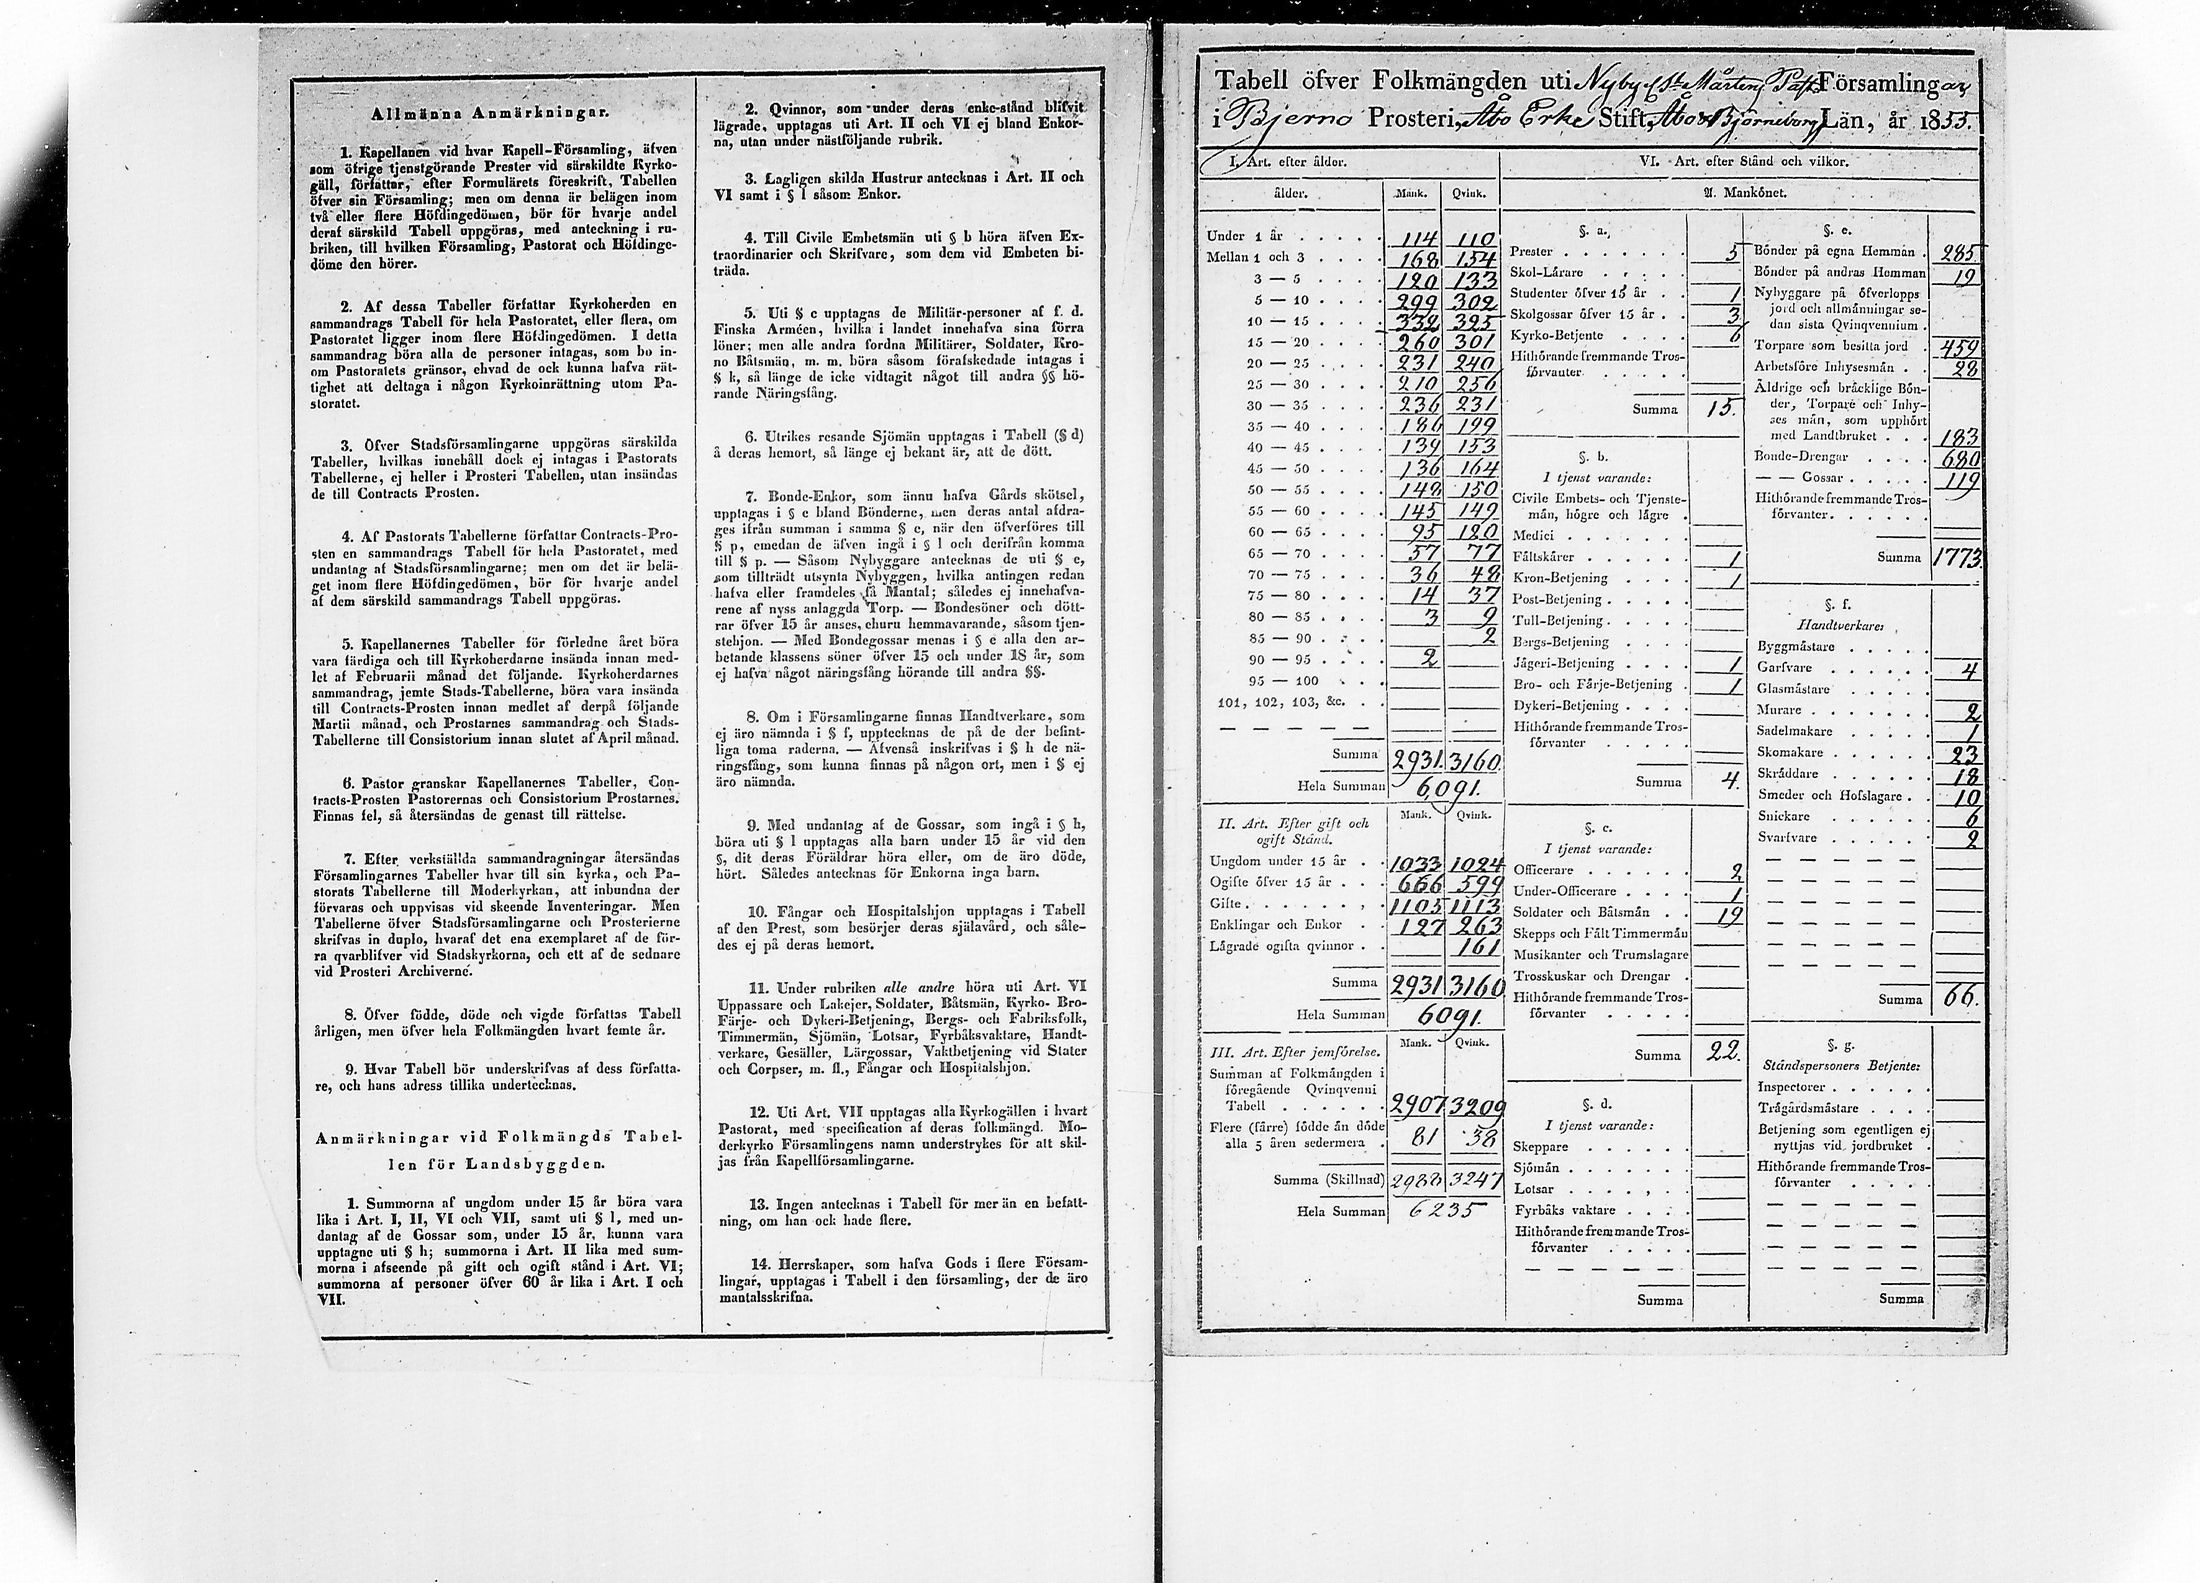 Allmänna Anmärkningar.
1. Kapellanen vid hvar Kapell-Församling, äfven
som öfrige tjenstgörande Prester vid särskildte Kyrko-
gäll, författar, efter Formulärets föreskrift, Tabellen
öfver sin Församling; men om denna är belägen inom
två eller flere Höfdingedömen, bör för hvarje andel
deraf särskild Tabell uppgöras, med anteckning i ru-
briken, till hvilken Församling, Pastorat och Höfdinge-
döme den hörer.
2. Af dessa Tabeller författar Kyrkoherden en
sammandrags Tabell för hela Pastoratet, eller flera, om
Pastoratet ligger inom flere Höfdingedömen. I detta
sammandrag böra alla de personer intagas, som bo in-
om Pastoratets gränsor, ehvad de ock kunna hafva rät-
tighet att deltaga i någon Kyrkoinrättning utom Pa-
storatet.
3. Öfver Stadsförsamlingarne uppgöras särskilda
Tabeller, hvilkas innehåll dock ej intagas i Pastorats
Tabellerne, ej heller i Prosteri Tabellen, utan insändas
de till Contracts Prosten.
4. Af Pastorats Tabellerne författar Contracts-Pro-
sten en sammandrags Tabell för hela Pastoratet, med
undantag af Stadsförsamlingarne; men om det är belä-
get inom flere Höfdingedömen, bör för hvarje andel
af dem särskild sammandrags Tabell uppgöras.
5. Kapellanernes Tabeller för förledne året böra
vara färdiga och till Kyrkoherdarne insända innan med-
let af Februarii månad det följande. Kyrkoherdarnes
sammandrag, jemte Stads-Tabellerne, böra vara insända
till Contracts-Prosten innan medlet af derpå följande
Martii månad, och Prostarnes sammandrag och Stads-
Tabellerne till Consistorium innan slutet af April månad.
6. Pastor granskar Kapellanernes Tabeller, Con-
tracts-Prosten Pastorernas och Consistorium Prostarnes.
Finnas fel, så återsändas de genast till rättelse.
7. Efter verkställda sammandragningar återsändas
Församlingarnes Tabeller hvar till sin kyrka, och Pa-
storats Tabellerne till Moderkyrkan, att inbundna der
förvaras och uppvisas vid skeende Inventeringar. Men
Tabellerne öfver Stadsförsamlingarne och Prosterierne
skrifvas in duplo, hvaraf det ena exemplaret af de för-
ra qvarblifver vid Stadskyrkorna, och ett af de sednare
vid Prosteri Archiverne.
8. Öfver födde, döde och vigde författas Tabell
årligen, men öfver hela Folkmängden hvart femte år.
9. Hvar Tabell bör underskrifvas af dess författa-
re, och hans adress tillika undertecknas.
Anmärkningar vid Folkmängds Tabel-
len för Landsbyggden.
1. Summorna af ungdom under 15 år böra vara
lika i Art. I, II, VI och VII, samt uti § l, med un-
dantag af de Gossar som, under 15 år, kunna vara
upptagne uti § h; summorna i Art. II lika med sum-
morna i afseende på gift och ogift stånd i Art. VI;
summorna af personer öfver 60 år lika i Art. I och
VII.
2. Qvinnor, som under deras enke-stånd blifvit
lägrade, upptagas uti Art. II och VI ej bland Enkor-
na, utan under nästföljande rubrik.
3. Lagligen skilda Hustrur antecknas i Art. II och
VI samt i § l såsom Enkor.
4. Till Civile Embetsmän uti § b höra äfven Ex-
traordinarier och Skrifvare, som dem vid Embeten bi-
träda.
5. Uti § c upptagas de Militär-personer af f. d.
Finska Arméen, hvilka i landet innehafva sina förra
löner; men alle andra fordna Militärer, Soldater, Kro-
no Båtsmän, m. m. böra såsom förafskedade intagas i
§ k, så länge de icke vidtagit något till andra §§ hö-
rande Näringsfång.
6. Utrikes resande Sjömän upptagas i Tabell (§ d)
å deras hemort, så länge ej bekant är, att de dött.
7. Bonde-Enkor, som ännu hafva Gårds skötsel,
upptagas i § e bland Bönderne, men deras antal afdra-
ges ifrån summan i samma § e, när den öfverföres till
§ p, emedan de äfven ingå i § l och derifrån komma
till § p. — Såsom Nybyggare antecknas de uti § e,
som tillträdt utsynta Nybyggen, hvilka antingen redan
hafva eller framdeles få Mantal; således ej innehafva-
rene af nyss anlaggda Torp. — Bondesöner och dött-
rar öfver 15 år anses, ehuru hemmavarande, såsom tjen-
stehjon. — Med Bondegossar menas i § e alla den ar-
betande klassens söner öfver 15 och under 18 år, som
ej hafva något näringsfång hörande till andra §§.
8. Om i Församlingarne finnas Handtverkare, som
ej äro nämnda i § f, upptecknas de på de der befint-
liga toma raderna. — Äfvenså inskrifvas i § h de nä-
ringsfång, som kunna finnas på någon ort, men i § ej
äro nämnda.
9. Med undantag af de Gossar, som ingå i § h,
böra uti § l upptagas alla barn under 15 år vid den
§, dit deras Föräldrar höra eller, om de äro döde,
hört. Således antecknas för Enkorna inga barn.
10. Fångar och Hospitalshjon upptagas i Tabell
af den Prest, som besörjer deras själavård, och såle-
des ej på deras hemort.
11. Under rubriken alle andre höra uti Art. VI
Uppassare och Lakejer, Soldater, Båtsmän, Kyrko- Bro-
Färje- och Dykeri-Betjening, Bergs- och Fabriksfolk,
Timmermän, Sjömän, Lotsar, Fyrbåksvaktare, Handt-
verkare, Gesäller, Lärgossar, Vaktbetjening vid Stater
och Corpser, m. fl., Fångar och Hospitalshjon.
12. Uti Art. VII upptagas alla Kyrkogällen i hvart
Pastorat, med specification af deras folkmängd. Mo-
derkyrko Församlingens namn understrykes för att skil-
jas från Kapellförsamlingarne.
13. Ingen antecknas i Tabell för mer än en befatt-
ning, om han ock hade flere.
14. Herrskaper, som hafva Gods i flere Försam-
lingar, upptagas i Tabell i den församling, der de äro
mantalsskrifna.
Tabell öfver Folkmängden uti Nyby & St Mårtens Past. Församlingar
i Bjerno Prosteri, Åbo Erke Stift, Åbo & Björneborgs Län, år 1855.
I. Art. efter ålder.
ålder. Mank. Qvink.
Under 1 år 114 110
Mellan 1 och 3 168 154
3 — 5 120 133
5 — 10 299 302
10 — 15 332 325
15 — 20 260 301
20 — 25 231 240
25 — 30 210 256
30 — 35 236 231
35 — 40 186 199
40 — 45 139 153
45 — 50 136 164
50 — 55 148 150
55 — 60 145 149
60 — 65 95 120
65 — 70 57 77
70 — 75 36 48
75 — 80 14 37
80 — 85 3 9
85 — 90 2
90 — 95 2
95 — 100
101, 102, 103, &c.
Summa 2931. 3160.
Hela Summan 6,091.
II. Art. Efter gift och Mank. Qvink.
ogift Stånd.
Ungdom under 15 år 1033 1024
Ogifte öfver 15 år 666 599
Gifte 1105 1113
Enklingar och Enkor 127 263
Lägrade ogifta qvinnor 161
Summa 2931 3160
Hela Summan 6091.
III. Art. Efter jemförelse. Mank. Qvink.
Summan af Folkmängden i
föregående Qvinqvenni
Tabell 2907 3209
Flere (färre) födde än döde
alla 5 åren sedermera 81 38
Summa (Skillnad) 2988 3247
Hela Summan 6235
VI. Art. efter Stånd och vilkor.
A. Mankönet.
§. a.
Prester 5
Skol-Lärare
Studenter öfver 15 år 1
Skolgossar öfver 15 år 3
Kyrko-Betjente 6
Hithörande fremmande Tros-
förvanter
Summa 15.
§. b.
I tjenst varande:
Civile Embets- och Tjenste-
män, högre och lägre
Medici
Fältskärer 1
Kron-Betjening 1
Post-Betjening
Tull-Betjening
Bergs-Betjening
Jägeri-Betjening 1
Bro- och Färje-Betjening 1
Dykeri-Betjening
Hithörande fremmande Tros-
förvanter
Summa 4.
§. c.
I tjenst varande:
Officerare 2
Under-Officerare 1
Soldater och Båtsmän 19
Skepps och Fält Timmermän
Musikanter och Trumslagare
Trosskuskar och Drengar
Hithörande fremmande Tros-
förvanter
Summa 22.
§. d.
I tjenst varande:
Skeppare
Sjömän
Lotsar
Fyrbåks vaktare
Hithörande fremmande Tros-
förvanter
Summa
§. e.
Bönder på egna Hemman 285
Bönder på andras Hemman 19
Nybyggare på öfverlopps
jord och allmänningar se-
dan sista Qvinqvennium
Torpare som besitta jord 459
Arbetsföre Inhysesmän 28
Äldrige och bräcklige Bön-
der, Torpare och Inhy-
ses män, som upphört
med Landtbruket 183
Bonde-Drengar 680
— — Gossar 119
Hithörande fremmande Tros-
förvanter
Summa 1773.
§. f.
Handtverkare:
Byggmästare
Garfvare 4
Glasmästare
Murare 2
Sadelmakare 1
Skomakare 23
Skräddare 18
Smeder och Hofslagare 10
Snickare 6
Svarfvare 2
Summa 66.
§. g.
Ståndspersoners Betjente:
Inspectorer
Trägårdsmästare
Betjening som egentligen ej
nyttjas vid jordbruket
Hithörande fremmande Tros-
förvanter
Summa